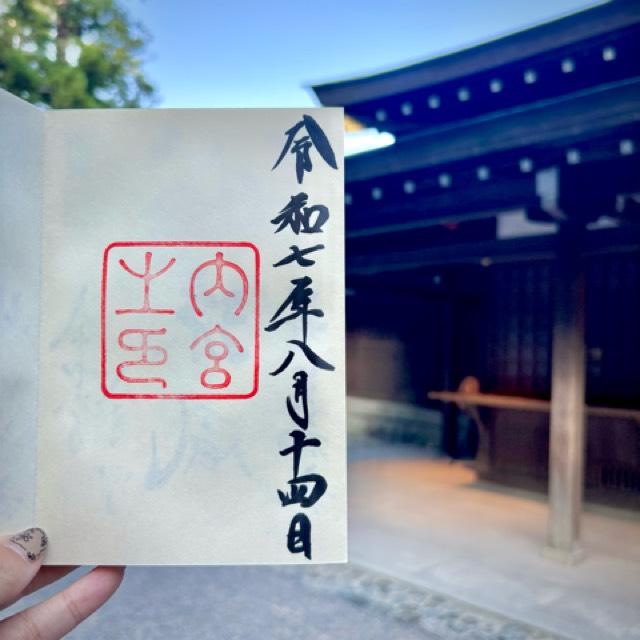 令和七年八月十四日
内宮
之印